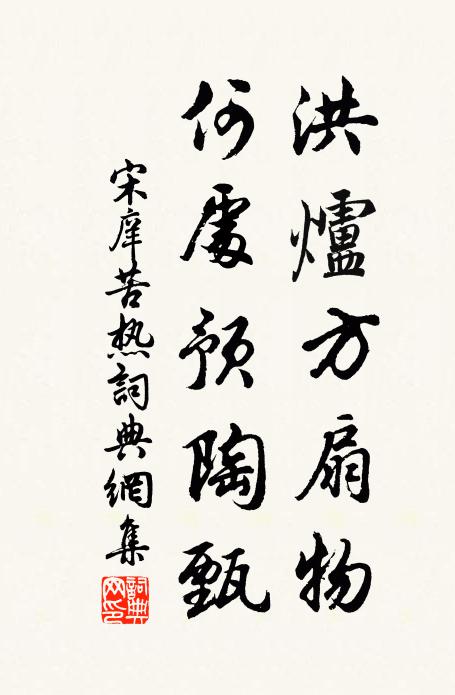 洪爐方扇物
何處預陶甄
宋庠苦热詞典網集
詞典网印